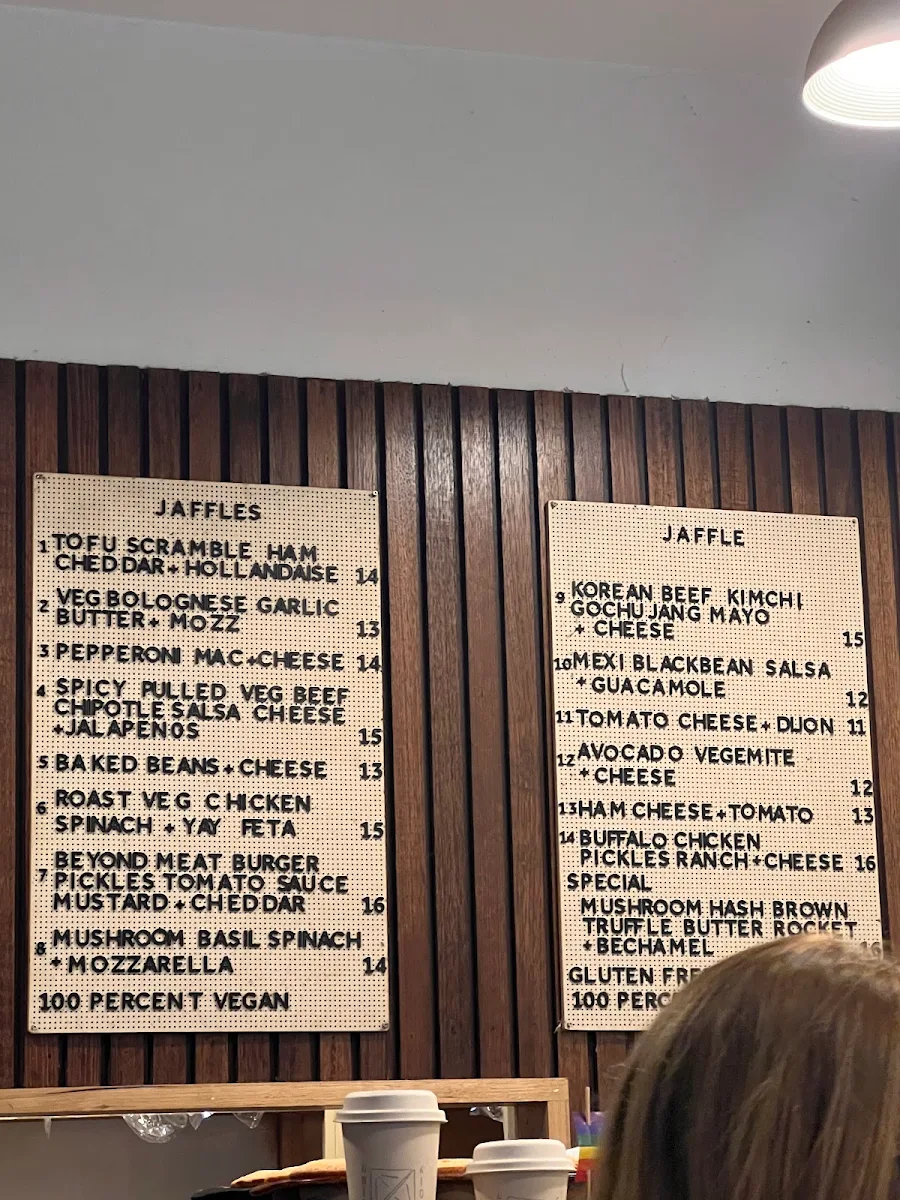 JAFFLES
1 TOFU SCRAMBLE HAM
CHEDDAR + HOLLANDAISE 14
2 VEG BOLOGNESE GARLIC
BUTTER + MOZZ 13
3 PEPPERONI MAC + CHEESE 14
4 SPICY PULLED VEG BEEF
CHIPOTLE SALSA CHEESE
+ JALAPENOS 15
5 BAKED BEANS + CHEESE 13
6 ROAST VEG CHICKEN
SPINACH + YAY FETA 15
7 BEYOND MEAT BURGER
PICKLES TOMATO SAUCE
MUSTARD + CHEDDAR 16
8 MUSHROOM BASIL SPINACH
+ MOZZARELLA 14
100 PERCENT VEGAN
JAFFLE
9 KOREAN BEEF KIMCHI
GOCHUJANG MAYO
+ CHEESE 15
10 MEXI BLACKBEAN SALSA
+ GUACAMOLE 12
11 TOMATO CHEESE + DIJON 11
12 AVOCADO VEGEMITE
+ CHEESE 12
13 HAM CHEESE + TOMATO 13
14 BUFFALO CHICKEN
PICKLES RANCH + CHEESE 16
SPECIAL
MUSHROOM HASH BROWN
TRUFFLE BUTTER ROCKET
+ BECHAMEL
GLUTEN
100